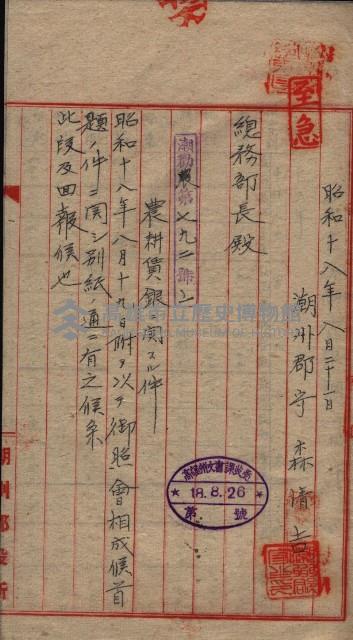 至急
昭和十八年八月二十一日
潮州郡守 森晴吉
總務部長殿
潮勸農第七九二號ノ二
農耕賃銀ニ関スル件
昭和十八年八月十九日附ヲ以テ御照會相成候首
題ノ件ニ関シ別紙ノ通ニ有之候条
此段及回報候也
高雄州文書課收受
18.8.26
第 號
潮州郡役所
高雄市立歷史博物館
KAOHSIUNG MUSEUM OF HISTORY